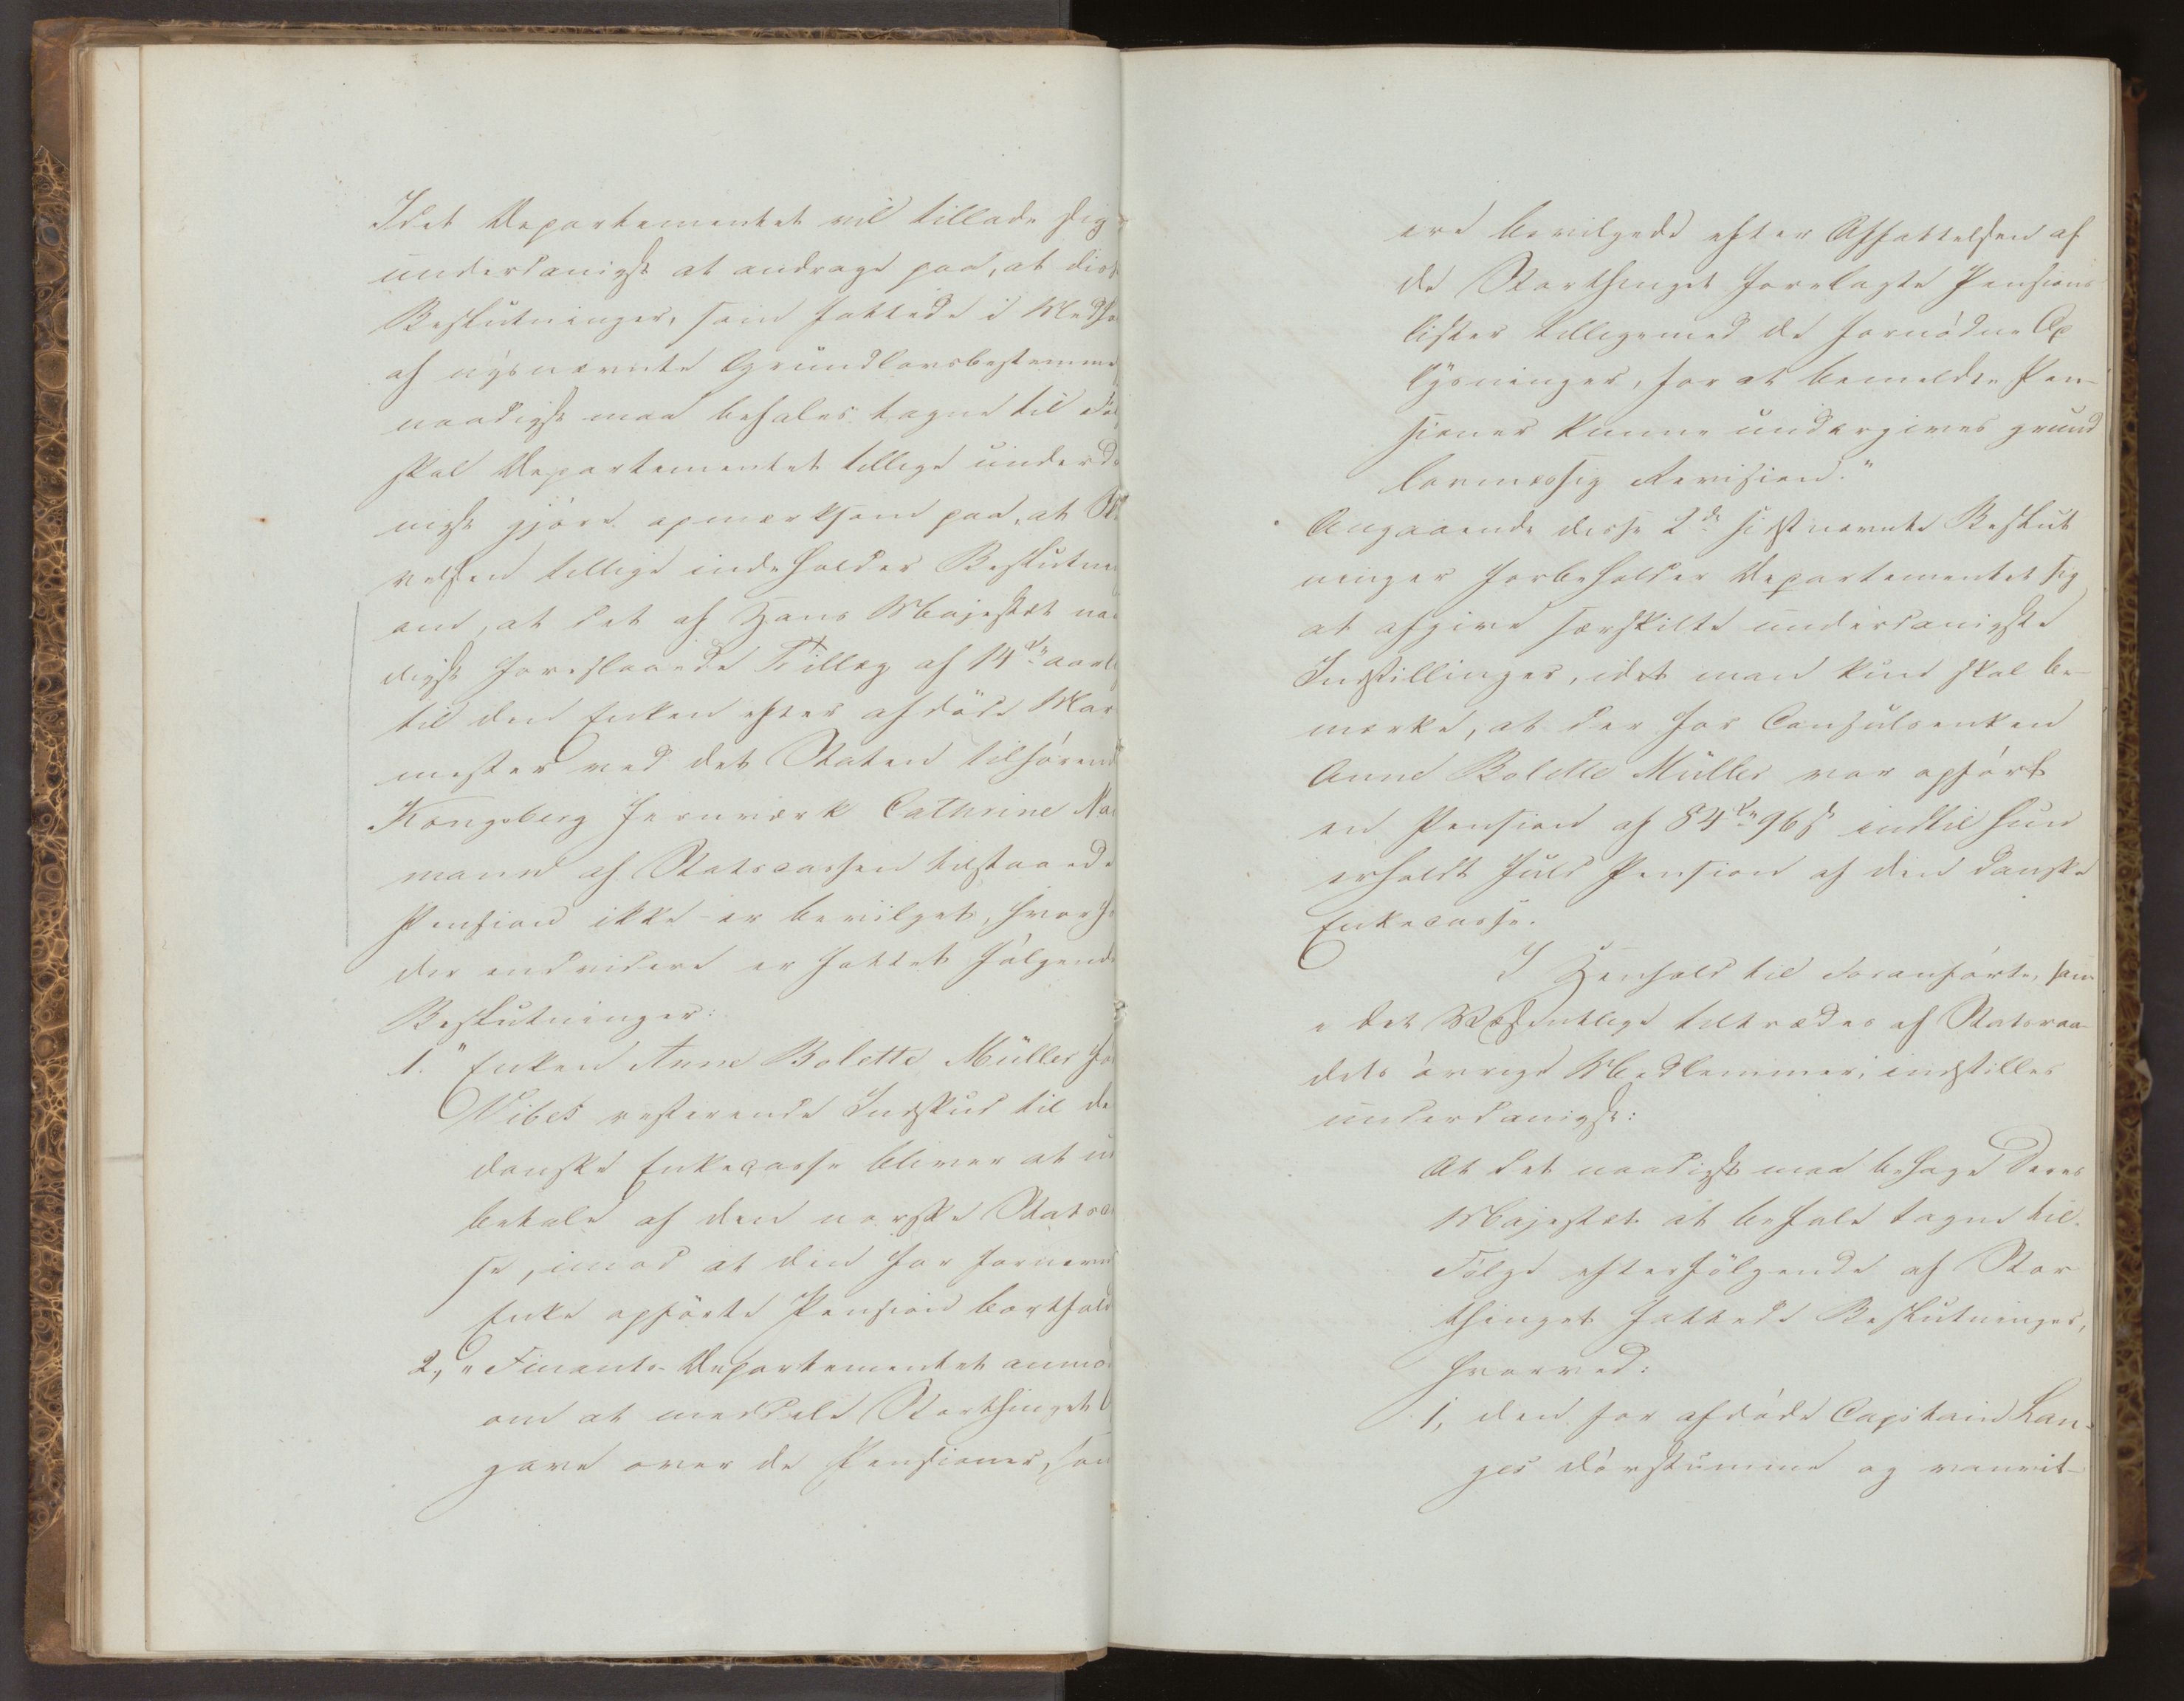 Idet Departementet vil tillade sig
underdanigst at andrage paa, at disse
Beslutninger, som fattede i Medho
af nysnævnte Grundlovsbestemmel
naadigst maa befales tagne til Føl
skal Departementet tillige underda
nigst gjøre opmærksom paa, at Skr
velsen tillige indeholder Beslutnin
om, at det af Hans Majestæt naa
digst foreslaaede Tillæg af 14 Spd aarli
til den Enken efter afdøde Mar
mester ved det Staten tilhørende
Kongsberg Jernværk Cathrine Na
mann af Statscassen tilstaaede
Pension ikke er bevilget, hvorho
der endvidere er fattet følgende
Beslutninger:
1. "Enken Anne Bolette Müller fød
Vibes resterende Indskud til de
danske Enkecasse bliver at ud
betale af den norske Statsca
se, imod at den for fornævn
Enke opførte Pension bortfald
2, "Finants-Departementet anmo
om at meddele Storthinget O
gave over de Pensioner, som
ere bevilgede efter Affattelsen af
de Storthinget forelagte Pensions
lister tilligemed de fornødne Op
lysninger, for at bemeldte Pen-
sioner kunne undergives grund
lovmæssig Revision."
Angaaende disse 2de sistnævnte Beslut
ninger forbeholder Departementet sig
at afgive særskilte underdanigste
Indstillinger, idet man kun skal be-
mærke, at der for Consulsenken
Anne Bolette Müller var opført
en Pension af 84 Spd 96 s indtil hun
erholdt fuld Pension af den danske
Enkecasse.
I Henhold til Foranførte, som
i det Væsentlige tiltrædes af Statsraa-
dets øvrige Medlemmer, indstilles
underdanigst:
At det naadigst maa behage Deres
Majestæt at befale tagne til
Følge efterfølgende af Stor
thinget fattede Beslutninger,
hvorved:
1, den for afdøde Capitain Lan-
ges døvstumme og vanvit-